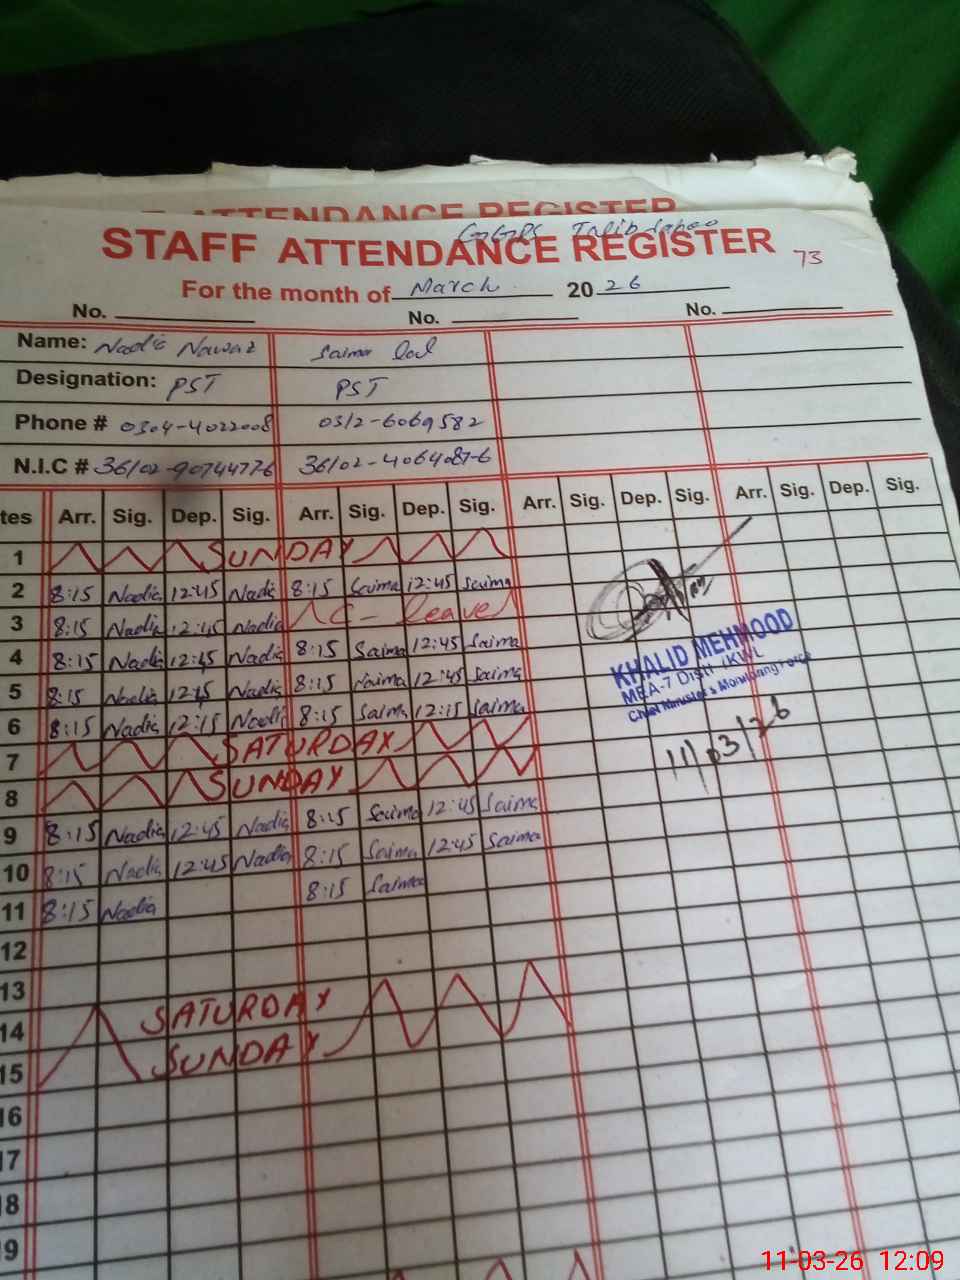 ATTENDANCE REGISTER
GGPS
STAFF ATTENDANCE REGISTER 73
For the month of March 20 26
No. No. No.
Name: Nadia Nawaz Saima
Designation: PST PST
Phone # 0304-4022008 0312-6069582
N.I.C # 36102-9074477-6 36102-4064087-6
tes Arr. Sig. Dep. Sig. Arr. Sig. Dep. Sig. Arr. Sig. Dep. Sig. Arr. Sig. Dep. Sig.
1 SUNDAY
2 8:15 Nadia 12:45 Nadia 8:15 Saima 12:45 Saima
3 8:15 Nadia 12:45 Nadia C-leave
4 8:15 Nadia 12:45 Nadia 8:15 Saima 12:45 Saima
5 8:15 Nadia 12:45 Nadia 8:15 Saima 12:45 Saima
6 8:15 Nadia 12:15 Nadia 8:15 Saima 12:15 Saima
7 SATURDAY
8 SUNDAY
9 8:15 Nadia 12:45 Nadia 8:15 Saima 12:45 Saima
10 8:15 Nadia 12:45 Nadia 8:15 Saima 12:45 Saima
11 8:15 Nadia 8:15 Saima
12
13
14 SATURDAY
15 SUNDAY
16
17
18
19
KHALID MEHMOOD
MEA-7 Distt (KWL
Chief Minister's Monitoring Force
11/03/26
11-03-26 12:09